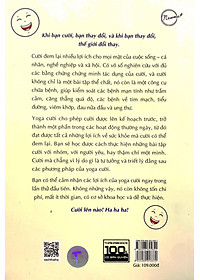 Khi bạn cười, bạn thay đổi, và khi bạn thay đổi,
thế giới đổi thay.
Cười đem lại nhiều lợi ích cho mọi mặt của cuộc sống - cá
nhân, nghề nghiệp và xã hội. Có vô số nghiên cứu với đủ
các bằng chứng chứng minh tác dụng của cười, và cười
không chỉ là một bài tập thể chất, nó còn là một công cụ
chữa bệnh, giúp kiểm soát các bệnh mạn tính như trầm
cảm, căng thẳng quá độ, các bệnh về tim mạch, tiểu
đường, viêm khớp, đau nửa đầu và ung thư.
Yoga cười cho phép cười được lên kế hoạch trước, trở
thành một phần trong các hoạt động thường ngày, từ đó
đạt được tất cả những lợi ích về sức khỏe mà cười có thể
đem lại. Bạn sẽ học được cách thực hiện những bài tập
cười với nhóm, với người yêu, hay thậm chí một mình.
Cười mà chẳng vì lý do gì là tư tưởng và triết lý đằng sau
các phương pháp của yoga cười.
Bạn có thể cảm nhận các lợi ích của yoga cười ngay trong
lần thử đầu tiên. Không những vậy, nó còn không tốn chi
phí, mất ít thời gian, có cơ sở khoa học và dễ thực hiện.
Cười lên nào! Ha ha ha!
THAIHABOOKS
100%
CÓ BẢN QUYỀN
Giá: 109.000đ